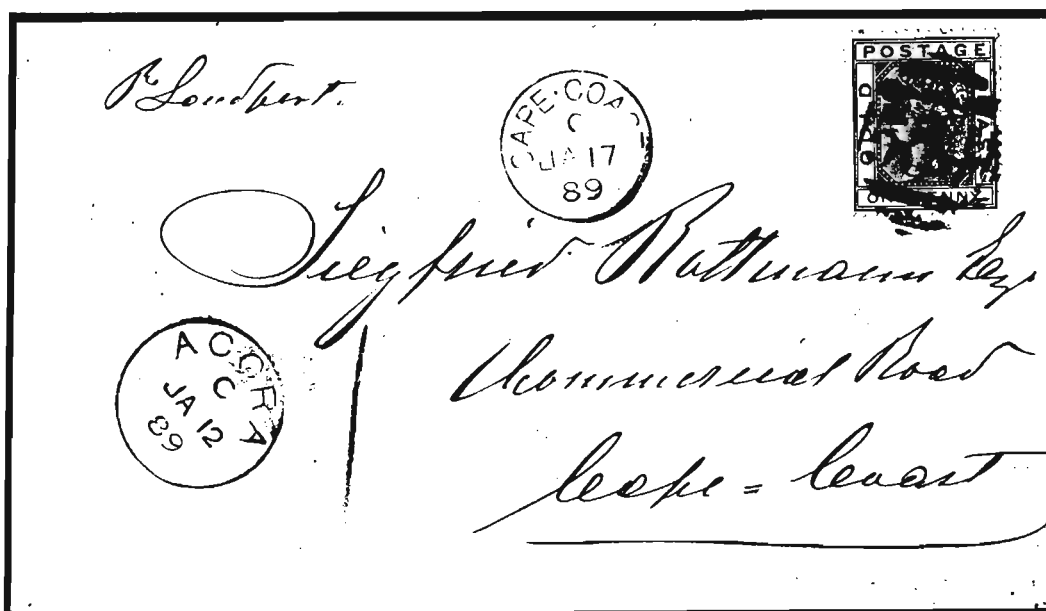 POSTAGE
GOLD COAST
ONE PENNY
CAPE·COAST
C
JA 17
89
Siegfried Rottmann Esq.
Commercial Road
Cape = Coast
ACCRA
C
JA 12
89